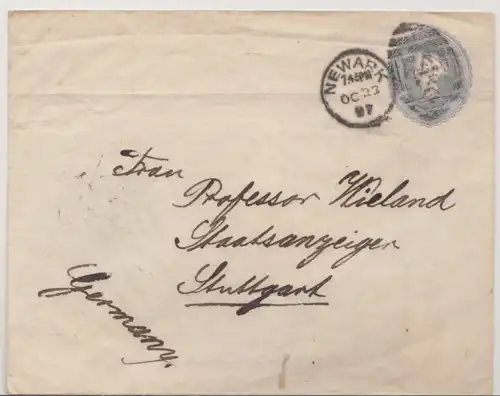 NEWARK
7.45PM
OC 23
97
Frau
Professor Wieland
Staatsanzeiger
Stuttgart
Germany.